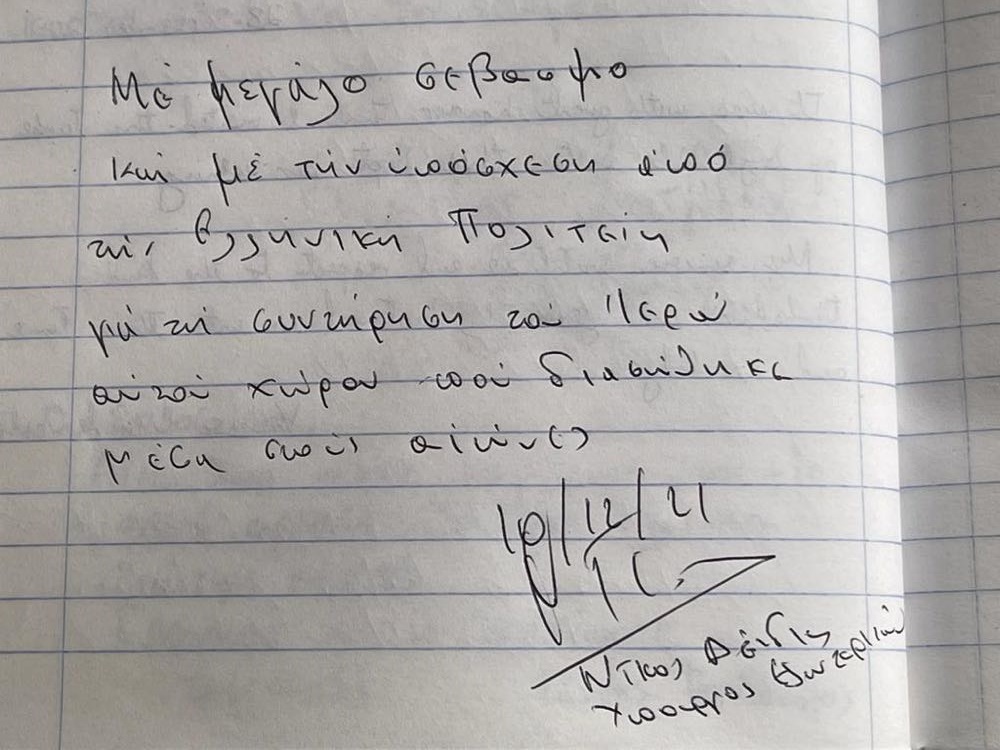 Μέ μεγάλο σεβασμο
και μέ τήν ὑπόσχεση ἀπό
τήν Ἑλληνική Πολιτεία
γιά τή συντήρηση τοῦ Ἱεροῦ
αὐτοῦ χώρου πού διασώθηκε
μέσα στούς αἰώνες
10/12/21
Νίκος Δένδιας
Υπουργος Εξωτερικών